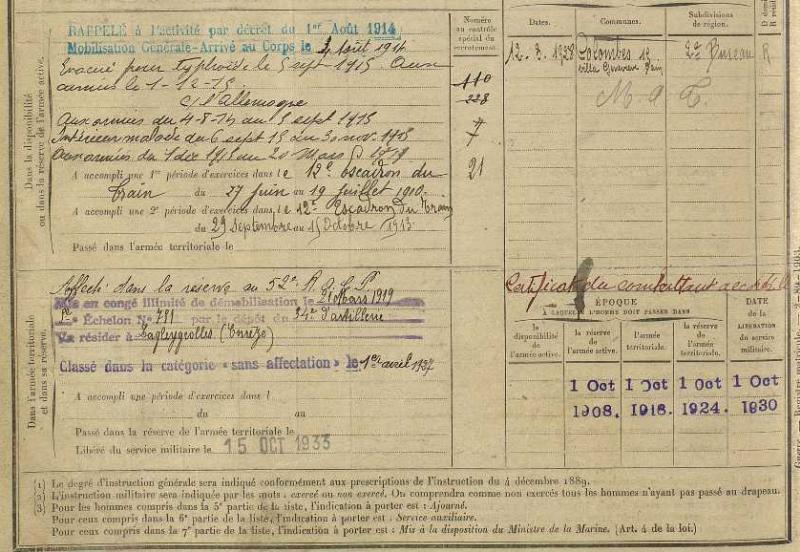 RAPPELÉ à l'activité par décret du 1er Août 1914
Mobilisation Générale-Arrivé au Corps le 3 Août 1914
Evacué pour typhoïde le 5 sept 1915. Aux
armées le 1-12-15
c/ l'Allemagne
Aux armées du 4-8-14 au 5 sept 1915
Intérieur malade du 6 sept 15 au 30 nov. 1915
Aux armées du 1 dec 1915 au 20 Mars 1919
A accompli une 1re période d'exercices dans le 12e Escadron du
train du 27 juin au 19 juillet 1910.
A accompli une 2e période d'exercices dans le 12e Escadron du Train
du 29 Septembre au 15 Octobre 1913
Passé dans l'armée territoriale le
Dans la disponibilité
ou dans la réserve de l'armée active.
Numéro
au contrôle
spécial du
recrutement.
110
228
7
7
21
Dates.
Communes.
Subdivisions
de région.
D
R
12.3.1928
Colombes 19
villa Genevieve
2e Bureau
R
M a T.
Affecté dans la réserve au 52e R.A.C.P.
Mis en congé illimité de démobilisation le 21 Mars 1919
Echelon No 781 par le dépôt du 34e d'artillerie
Va résider à (Corrèze)
Classé dans la catégorie "sans affectation" le 1er avril 1937
A accompli une période d'exercices dans l
du au
Passé dans la réserve de l'armée territoriale le
Libéré du service militaire le 15 OCT 1933
Dans l'armée territoriale
et dans sa réserve.
Certificat du combattant
ÉPOQUE
À LAQUELLE L'HOMME DOIT PASSER DANS
DATE
de la
LIBÉRATION
du service
militaire.
la
disponibilité
de l'armée active.
la réserve
de l'armée active.
l'armée
territoriale.
la réserve
de l'armée
territoriale.
1 Oct 1 Oct 1 Oct 1 Oct
1908. 1918. 1924. 1930
(1) Le degré d'instruction générale sera indiqué conformément aux prescriptions de l'Instruction du 4 décembre 1889.
(2) L'instruction militaire sera indiquée par les mots : exercé ou non exercé. On comprendra comme non exercés tous les hommes n'ayant pas passé au drapeau.
(3) Pour les hommes compris dans la 5e partie de la liste, l'indication à porter est : Ajourné.
Pour ceux compris dans la 6e partie de la liste, l'indication à porter est : Service auxiliaire.
Pour ceux compris dans la 7e partie de la liste, l'indication à porter est : Mis à la disposition du Ministre de la Marine. (Art. 4 de la loi.)